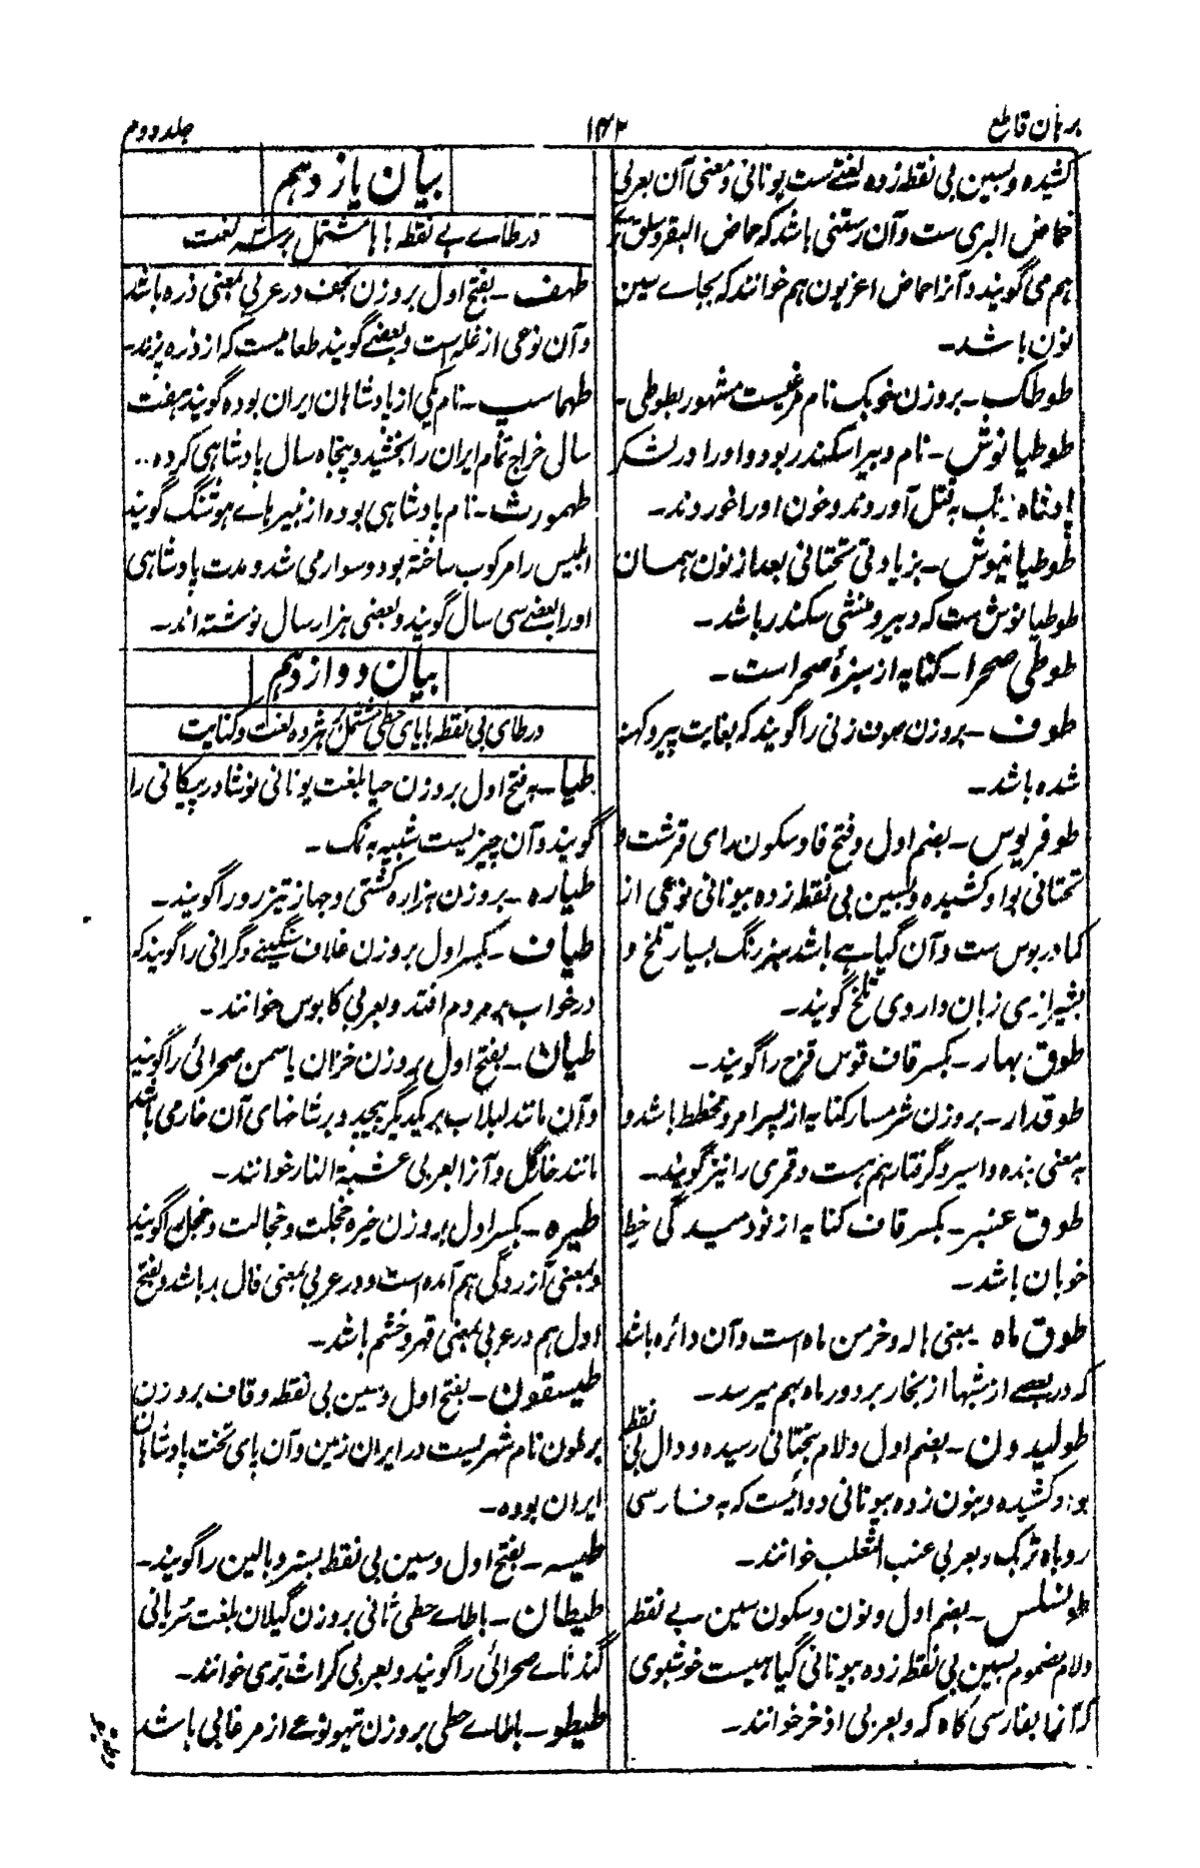 برهان قاطع
۱۴۲
جلد دوم
کشیده و بسین بی نقطه زده لغتے ست یونانی و معنی آن بعربی
حماض البری ست و آن رستنی باشد که حماض البقر و سلق بری
هم می گویند و آنرا حماض اغریون هم خوانند که بجاے سین
نون باشد۔
طوطک ۔ بروزن خوبک نام مرغیست مشهور بطوطی۔
طوطیانوش ۔ نام دبیر اسکندر بود و او را در لشکر
پادشاه زنگ به قتل آوردند و خون او را خوردند۔
طوطیانیوش ۔ بزیادتی تحتانی بعد از نون همان
طوطیانوش ست که دبیر و منشی سکندر باشد۔
طوطی صحرا ۔ کنایه از سبزهٔ صحر است۔
طوف ۔ بروزن صوف زنی را گویند که بغایت پیر و کهنه
شده باشد۔
طوفریوس ۔ بضم اول و فتح فا و سکون رای قرشت و
تحتانی بواو کشیده و بسین بی نقطه زده بیونانی نوعی از
کمادریوس ست و آن گیاہے باشد سبز رنگ بسیار تلخ و
بشیرازی زبان داروی تلخ گویند۔
طوق بهار ۔ بکسر قاف قوس قزح را گویند۔
طوقدار ۔ بروزن شرمسار کنایه از پسر امرد مخطط باشد و
به معنی بنده و اسیر و گرفتار هم هست و قمری را نیز گویند۔
طوق عنبر ۔ بکسر قاف کنایه از نو دمیدگی خط
خوبان باشد۔
طوق ماه ۔ بمعنی هاله و خرمن ماه است و آن دائره باشد
که در بعضے از شبها از بخار بر دور ماه بهم میرسد۔
طولیدون ۔ بضم اول و لام بتحتانی رسیده و دال بی نقطه
بواو کشیده و بنون زده بیونانی دوائیست که به فارسی
روباه تربک و بعربی عنب الثعلب خوانند۔
طونسلس ۔ بضم اول و نون و سکون سین بے نقطه
و لام مضموم بسین بی نقطه زده بیونانی گیاهیست خوشبوی
که آنرا بفارسی کاه مکه و بعربی اذخر خوانند۔
بیان یازدهم
در طاے بے نقطه با ها مشتمل بر سه لغت
طهف ۔ بفتح اول بروزن کهف در عربی بمعنی ذره باشد
و آن نوعی از غله است و بعضے گویند طعامیست که از ذره پزند۔
طهماسپ ۔ نام یکی از پادشاهان ایران بوده گویند هفت
سال خراج تمام ایران را بخشید و پنجاه سال پادشاهی کرده۔۔
طهمورث ۔ نام پادشاهی بوده از نبیرہاے هوشنگ گویند
ابلیس را مرکوب ساخته بود و سوار می شد و مدت پادشاهی
او را بعضے سی سال گویند و بعضی هزار سال نوشته اند۔
بیان دوازدهم
در طای بی نقطه با یای حطی مشتمل بر هژده لغت و کنایت
طیا ۔ به فتح اول بروزن حیا بلغت یونانی نوشادر پیکانی را
گویند و آن چیزیست شبیه به نمک۔
طیاره ۔ بروزن هزاره کشتی و جهاز تیزرو را گویند۔
طیاف ۔ بکسر اول بروزن غلاف سنگینے و گرانی را گویند که
در خواب بر مردم افتد و بعربی کابوس خوانند۔
طیان ۔ بفتح اول بروزن خزان یاسمن صحرائی را گویند
و آن مانند لبلاب بر یکدیگر پیچد و بر شاخهای آن خار می باشد
مانند خار گل و آنرا بعربی عشبة النار خوانند۔
طیره ۔ بکسر اول بروزن خیره خجلت و خجالت و خجل را گویند
و بمعنی آزردگی هم آمده است و در عربی بمعنی فال بد باشد و بفتح
اول هم در عربی بمعنی قهر و خشم باشد۔
طیسقون ۔ بفتح اول و سین بی نقطه و قاف بروزن
بر طون نام شهریست در ایران زمین و آن پای تخت پادشاهان
ایران بوده۔
طیسه ۔ بفتح اول و سین بی نقطه بستر و بالین را گویند۔
طیطان ۔ باطاے حطی ثانی بروزن گیلان بلغت سریانی
گندناے صحرائی را گویند و بعربی کراث بری خوانند۔
طیطو ۔ باطاے حطی بروزن تیهو نوعے از مرغابی باشد